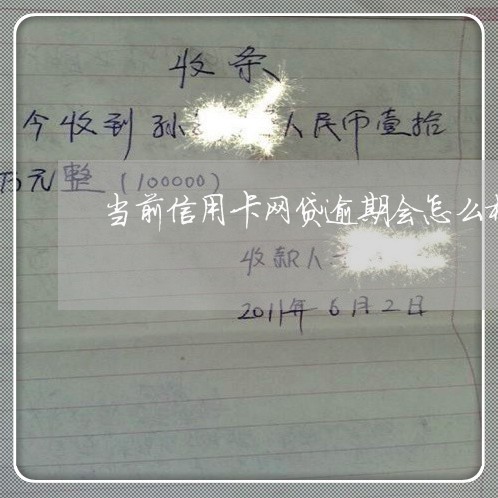 收条
今收到孙 人民币壹拾
万元整(100000)
当前信用卡网贷逾期会怎么
收款人
2011年6月2日